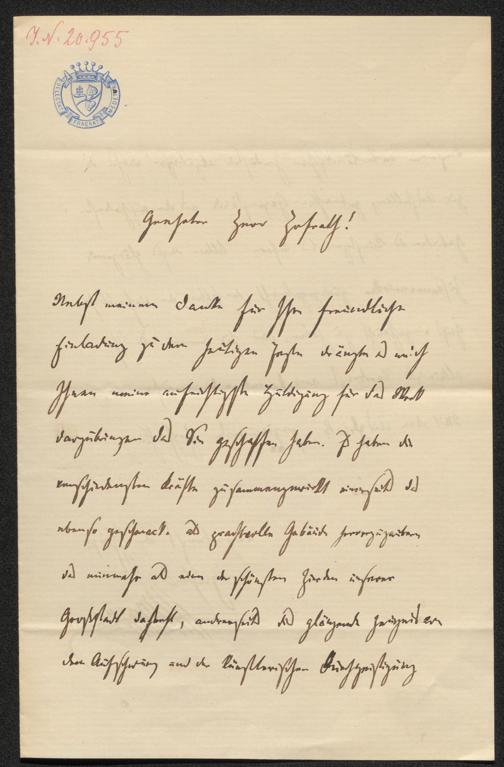 J.N. 20.955
Geehrter Herr Hofrath!
Nebst meinem Danke für Ihre freundliche
Einladung zu dem heutigen Feste drängt es mich
Ihnen meine aufrichtigste Huldigung für das Werk
darzubringen das Sie geschaffen haben. Es haben die
verschiedensten Kräfte zusammengewirkt einerseits das
ebenso geschmack- als prachtvolle Gebäude hervorzurufen
das nunmehr als eine der schönsten Zierden unserer
Großstadt dasteht, andrerseits das glänzende Zeugniß von
dem Aufschwung und der künstlerischen Durchgeistigung